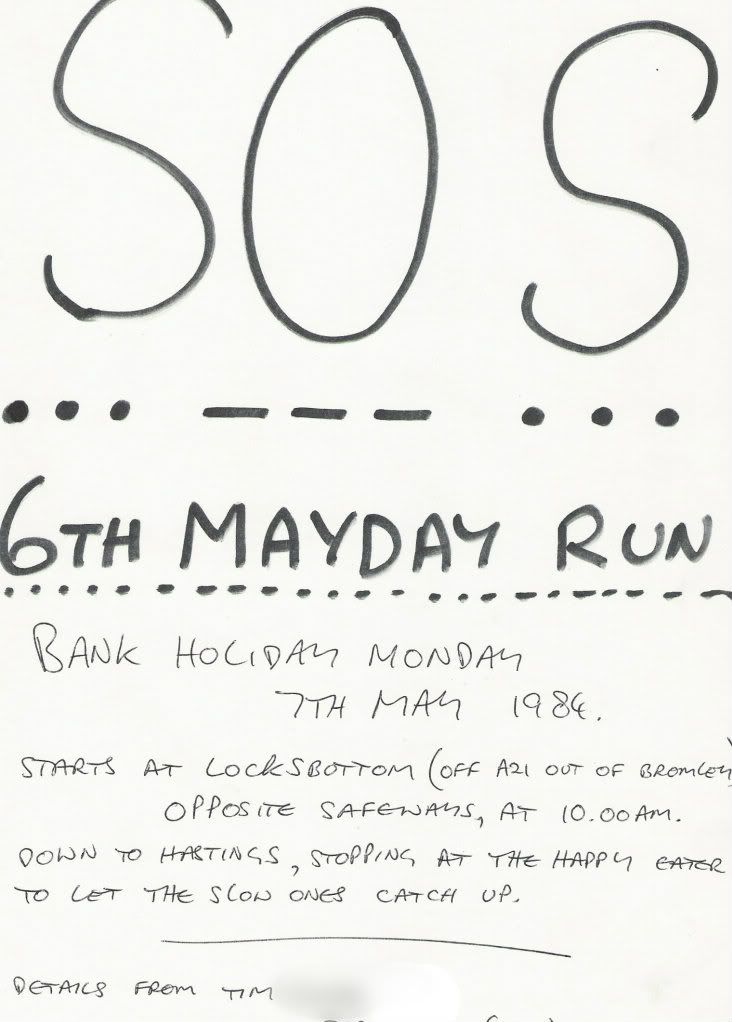 SOS
... --- ...
6TH MAYDAY RUN
BANK HOLIDAY MONDAY
7TH MAY 1984.
STARTS AT LOCKSBOTTOM (OFF A21 OUT OF BROMLEY)
OPPOSITE SAFEWAYS, AT 10.00AM.
DOWN TO HASTINGS, STOPPING AT THE HAPPY EATER
TO LET THE SLOW ONES CATCH UP.
DETAILS FROM TIM